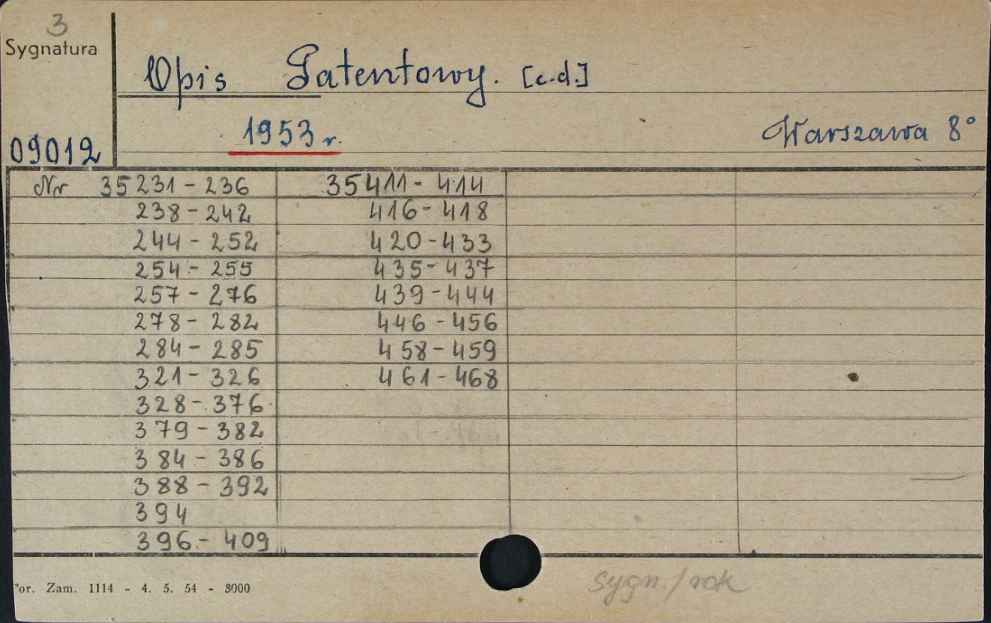 3
Sygnatura
Opis Patentowy. [c.d.]
1953 r.
Warszawa 8°
09012
Nr 35231 - 236 35411 - 414
238 - 242 416 - 418
244 - 252 420 - 433
254 - 255 435 - 437
257 - 276 439 - 444
278 - 282 446 - 456
284 - 285 458 - 459
321 - 326 461 - 468
328 - 376
379 - 382
384 - 386
388 - 392
394
396 - 409
or. Zam. 1114 - 4. 5. 54 - 8000
sygn./rok